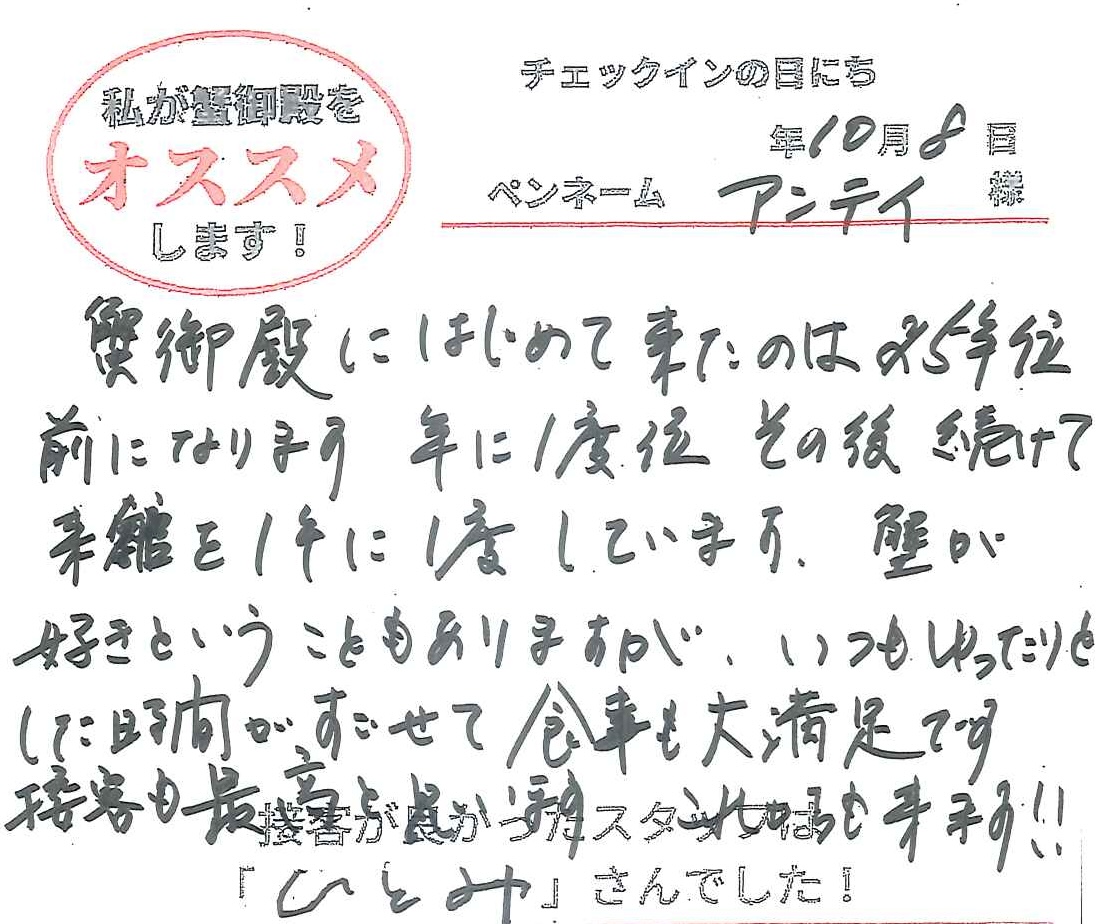 私が蟹御殿を
オススメ
します！
チェックインの日にち
年10月8日
ペンネーム アンティ 様
蟹御殿にはじめて来たのは25年位
前になります 年に1度位 その後 続けて
来館を1年に1度しています. 蟹が
好きということもありますが、いつもゆったりと
した時間がすごせて食事も大満足です
接客も最高と思います これからも来ます!!
接客が良かったスタッフは
「ひとみ」さんでした！